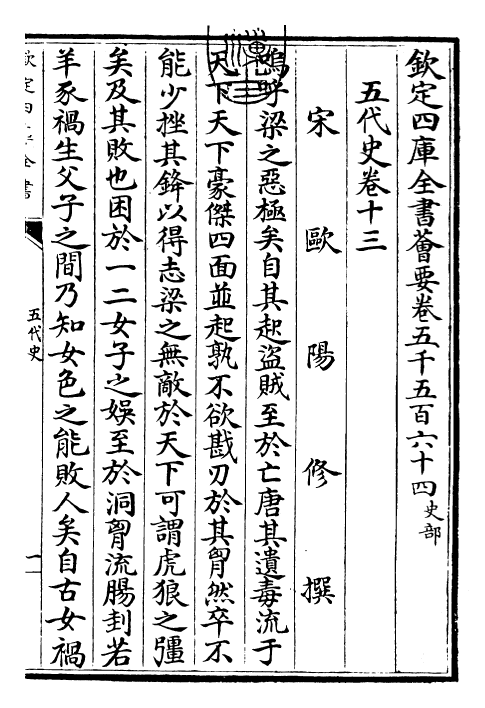 欽定四庫全書薈要卷五千五百六十四史部
五代史卷十三
宋歐陽修撰
嗚呼梁之惡極矣自其起盜賊至於亡唐其遺毒流于
天下天下豪傑四面並起孰不欲戡刃於其胷然卒不
能少挫其鋒以得志梁之無敵於天下可謂虎狼之彊
矣及其敗也困於一二女子之娛至於洞胷流腸刲若
羊豕禍生父子之間乃知女色之能敗人矣自古女禍
欽定四庫全書
五代史
一